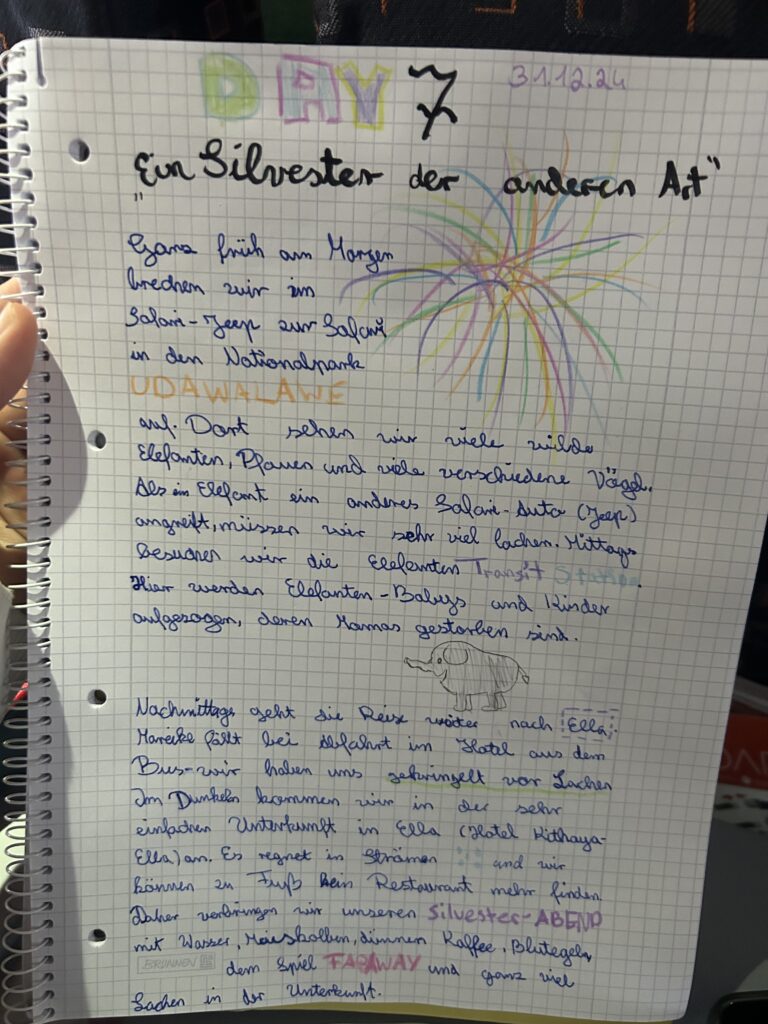 DAY 7 31.12.24
"Ein Silvester der anderen Art"
Ganz früh am Morgen
brechen wir im
Safari-Jeep zur Safari
in den Nationalpark
UDAWALAWE
auf. Dort sehen wir viele wilde
Elefanten, Pfauen und viele verschiedene Vögel.
Als ein Elefant ein anderes Safari-Auto (Jeep)
angreift, müssen wir sehr viel lachen. Mittags
besuchen wir die Elefanten Transit Station.
Hier werden Elefanten-Babys und Kinder
aufgezogen, deren Mamas gestorben sind.
Nachmittags geht die Reise weiter nach Ella.
Mareike fällt bei Abfahrt im Hotel aus dem
Bus-wir haben uns gekringelt vor Lachen
Im Dunkeln kommen wir in der sehr
einfachen Unterkunft in Ella (Hotel Kithaya-
Ella) an. Es regnet in Strömen und wir
können zu Fuß kein Restaurant mehr finden.
Daher verbringen wir unseren Silvester-ABEND
mit Wasser, Maiskolben, dünnen Kaffee, Blutegeln,
BRUNNEN dem Spiel FARAWAY und ganz viel
Lachen in der Unterkunft.